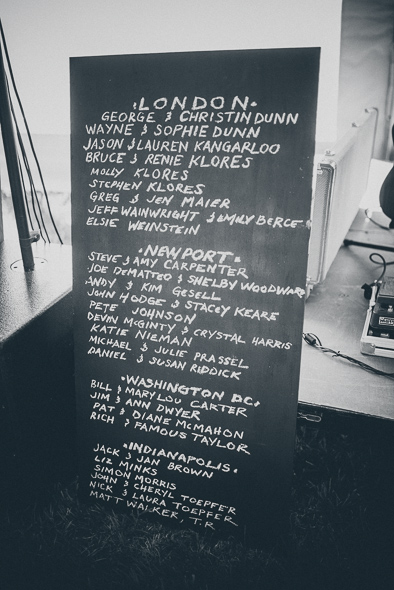 ·LONDON·
GEORGE & CHRISTIN DUNN
WAYNE & SOPHIE DUNN
JASON & LAUREN KANGARLOO
BRUCE & RENIE KLORES
MOLLY KLORES
STEPHEN KLORES
GREG & JEN MAIER
JEFF WAINWRIGHT & EMILY BERGE
ELSIE WEINSTEIN
·NEWPORT·
STEVE & AMY CARPENTER
JOE DEMATTEO & SHELBY WOODWARD
ANDY & KIM GESELL
JOHN HODGE & STACEY KEARE
PETE JOHNSON
DEVIN McGINTY & CRYSTAL HARRIS
KATIE NIEMAN
MICHAEL & JULIE PRASSEL
DANIEL & SUSAN RIDDICK
·WASHINGTON DC·
BILL & MARY LOU CARTER
JIM & ANN DWYER
PAT & DIANE McMAHON
RICH & FAMOUS TAYLOR
·INDIANAPOLIS·
JACK & JAN BROWN
LIZ MINKS
SIMON MORRIS
JOHN & CHERYL TOEPFER
NICK & LAURA TOEPFER
MATT WALKER, T.R